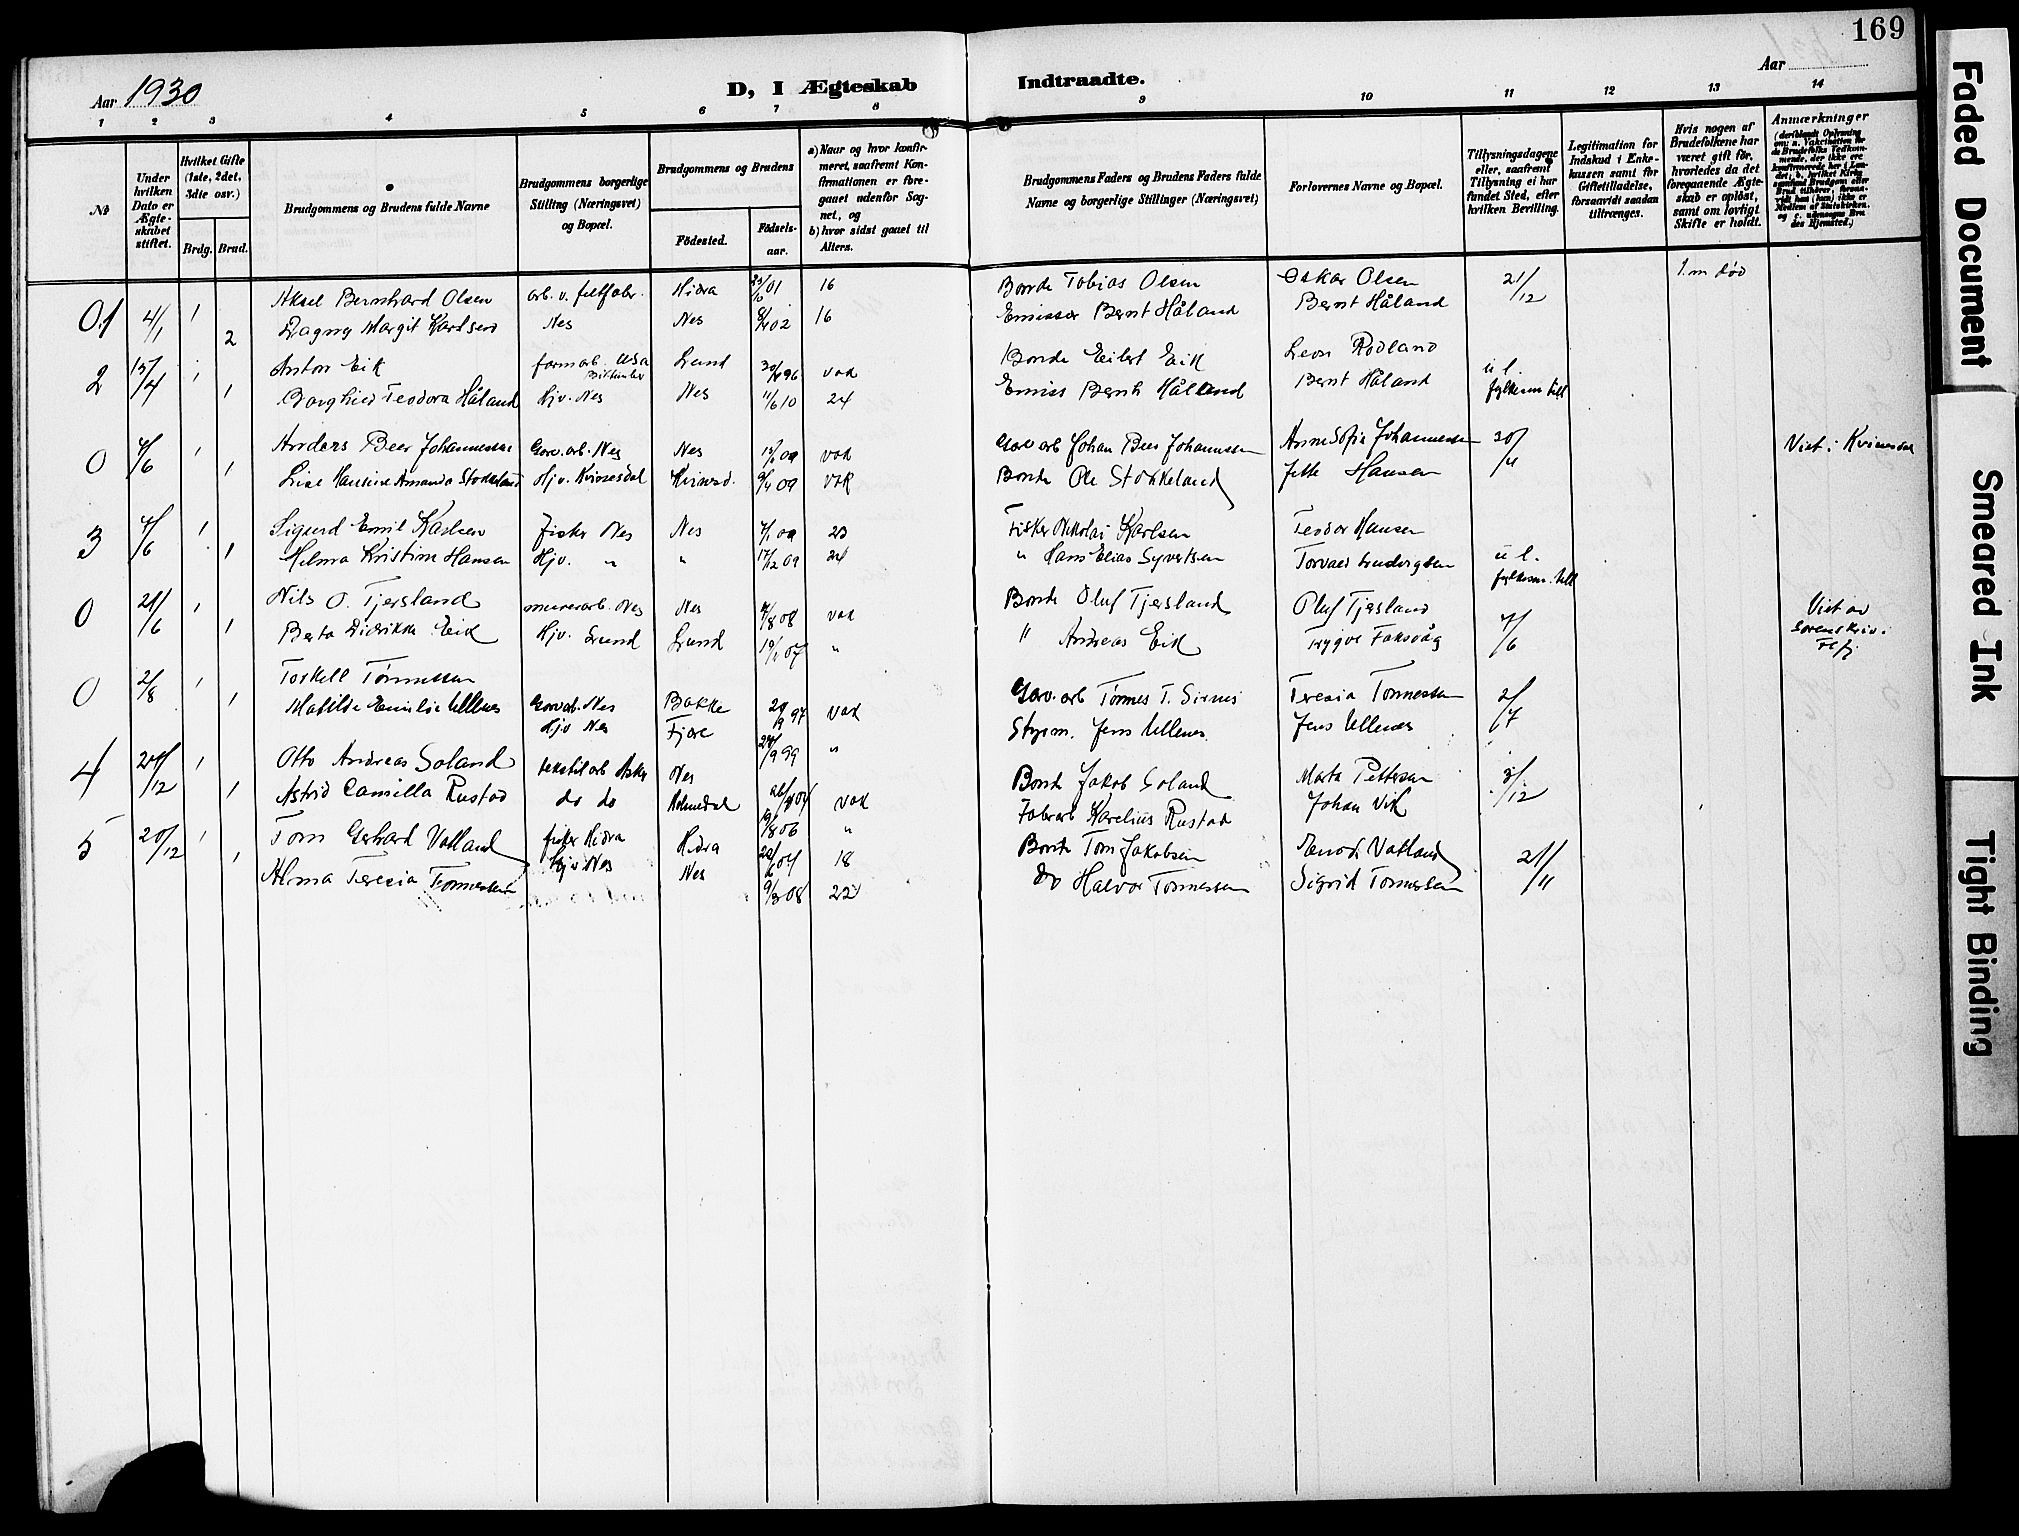 169
Aar 1930
D, I Ægteskab Indtraadte.
Aar
1 2 3 4 5 6 7 8 9 10 11 12 13 14
No
Under hvilken Dato er Ægteskabet stiftet.
Hvilket Gifte (1ste, 2det, 3die osv.)
Brdg. Brud.
Brudgommens og Brudens fulde Navne
Brudgommens borgerlige Stilling (Næringsvei) og Bopæl.
Brudgommens og Brudens
Födested. Födsels-aar.
a) Naar og hvor konfirmeret, saafremt Konfirmationen er foregaaet udenfor Sognet, og
b) hvor sidst gaaet til Alters.
Brudgommens Faders og Brudens Faders fulde Navne og borgerlige Stillinger (Næringsvei)
Forlovernes Navne og Bopæl.
Tillysningsdagene eller, saafremt Tillysning ei har fundet Sted, efter hvilken Bevilling.
Legitimation for Indskud i Enkekassen samt for Giftetilladelse, forsaavidt saadan tiltrænges.
Hvis nogen af Brudefolkene har været gift för, hvorledes da det foregaaende Ægteskab er oplöst, samt om lovligt Skifte er holdt.
Anmærkninger
0,1 4/1 1 Aksel Bernhard Olsen arb. v. filtfabr. Hidra 01 16 Bonde Tobias Olsen Oskar Olsen 21/12 1. m död
2 Dagny Margit Karlsen Nes Nes 02 16 Emissær Bernt Håland Bernt Håland
2 15/4 1 Anton Eik farmarb. USA Lund 30/4 96 vak Bonde Eilert Eik Leon Rödland u l.
1 Borghild Teodora Håland Hjv. Nes Nes 11/6 10 24 Emiss Bernt Håland Bernt Håland fylkesm till
0 7/6 1 Anders Beer Johannessen Garv. arb. Nes Nes 09 vak Garv arb Johan Beer Johannessen Anne Sofie Johannessen 30/4 Viet i Kvinesdal
1 Lise Hansine Amanda Stokkeland Hjv. Kvinesdal Kvinesd. 9/4 09 vak Bonde Ole Stokkeland Jette Hansen
3 7/6 1 Sigurd Emil Karlsen Fisker Nes Nes 7/1 00 23 Fisker Nikolai Karlsen Teodor Hansen
1 Helma Kristine Hansen Hjv. " " 17/12 09 24 " Hans Elias Syvertsen Torvald Ludvigsen u l. fylkesm. till
0 21/6 1 Nils O. Tjersland murerarb. Nes Nes 4/8 08 vak Bonde Oluf Tjersland Oluf Tjersland 7/6 Viet av Sorenskriv. i Fl/fj
1 Berta Didrikke Eik Hjv. Lund Lund 19/1 07 " " Andreas Eik Trygve Faksvåg
0 2/8 1 Torkell Tönnessen Garv arb. Nes Bakke 29/9 97 vak Garv. arb Tönnes T. Sirnes Teresia Tönnessen 2/7
1 Matilde Emilie Ullenes Hjv Nes Fjære 24/9 99 " Styrm. Jens Ullenes Jens Ullenes
4 24/12 1 Otto Andreas Soland tekstilarb Asker Nes vak Bonde Jakob Soland Marta Pettersen 3/12
1 Astrid Camilla Rustad do do Holmedal 9/8 06 " Fabrarb Karelius Rustad Johan Vik
5 20/12 1 Tom Gerhard Vatland fisker Hidra Hidra 04 18 Bonde Tom Jakobsen Vatland 21/11
1 Alma Teresia Tönnessen Hjv Nes Nes 9/3 08 22 do Halvor Tönnessen Sigrid Tönnessen
Faded Document
Smeared Ink
Tight Binding